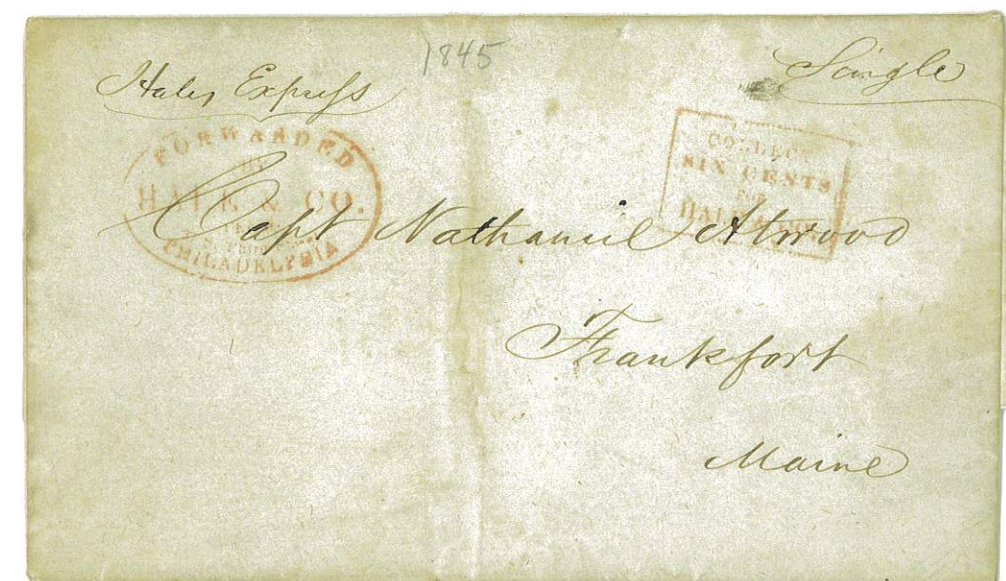 1845
Single
Hales Express
FORWARDED
BY
HALE & CO.
PHILADELPHIA
COLLECT
SIX CENTS
FOR
HALE & CO.
Capt Nathaniel Atwood
Frankfort
Maine